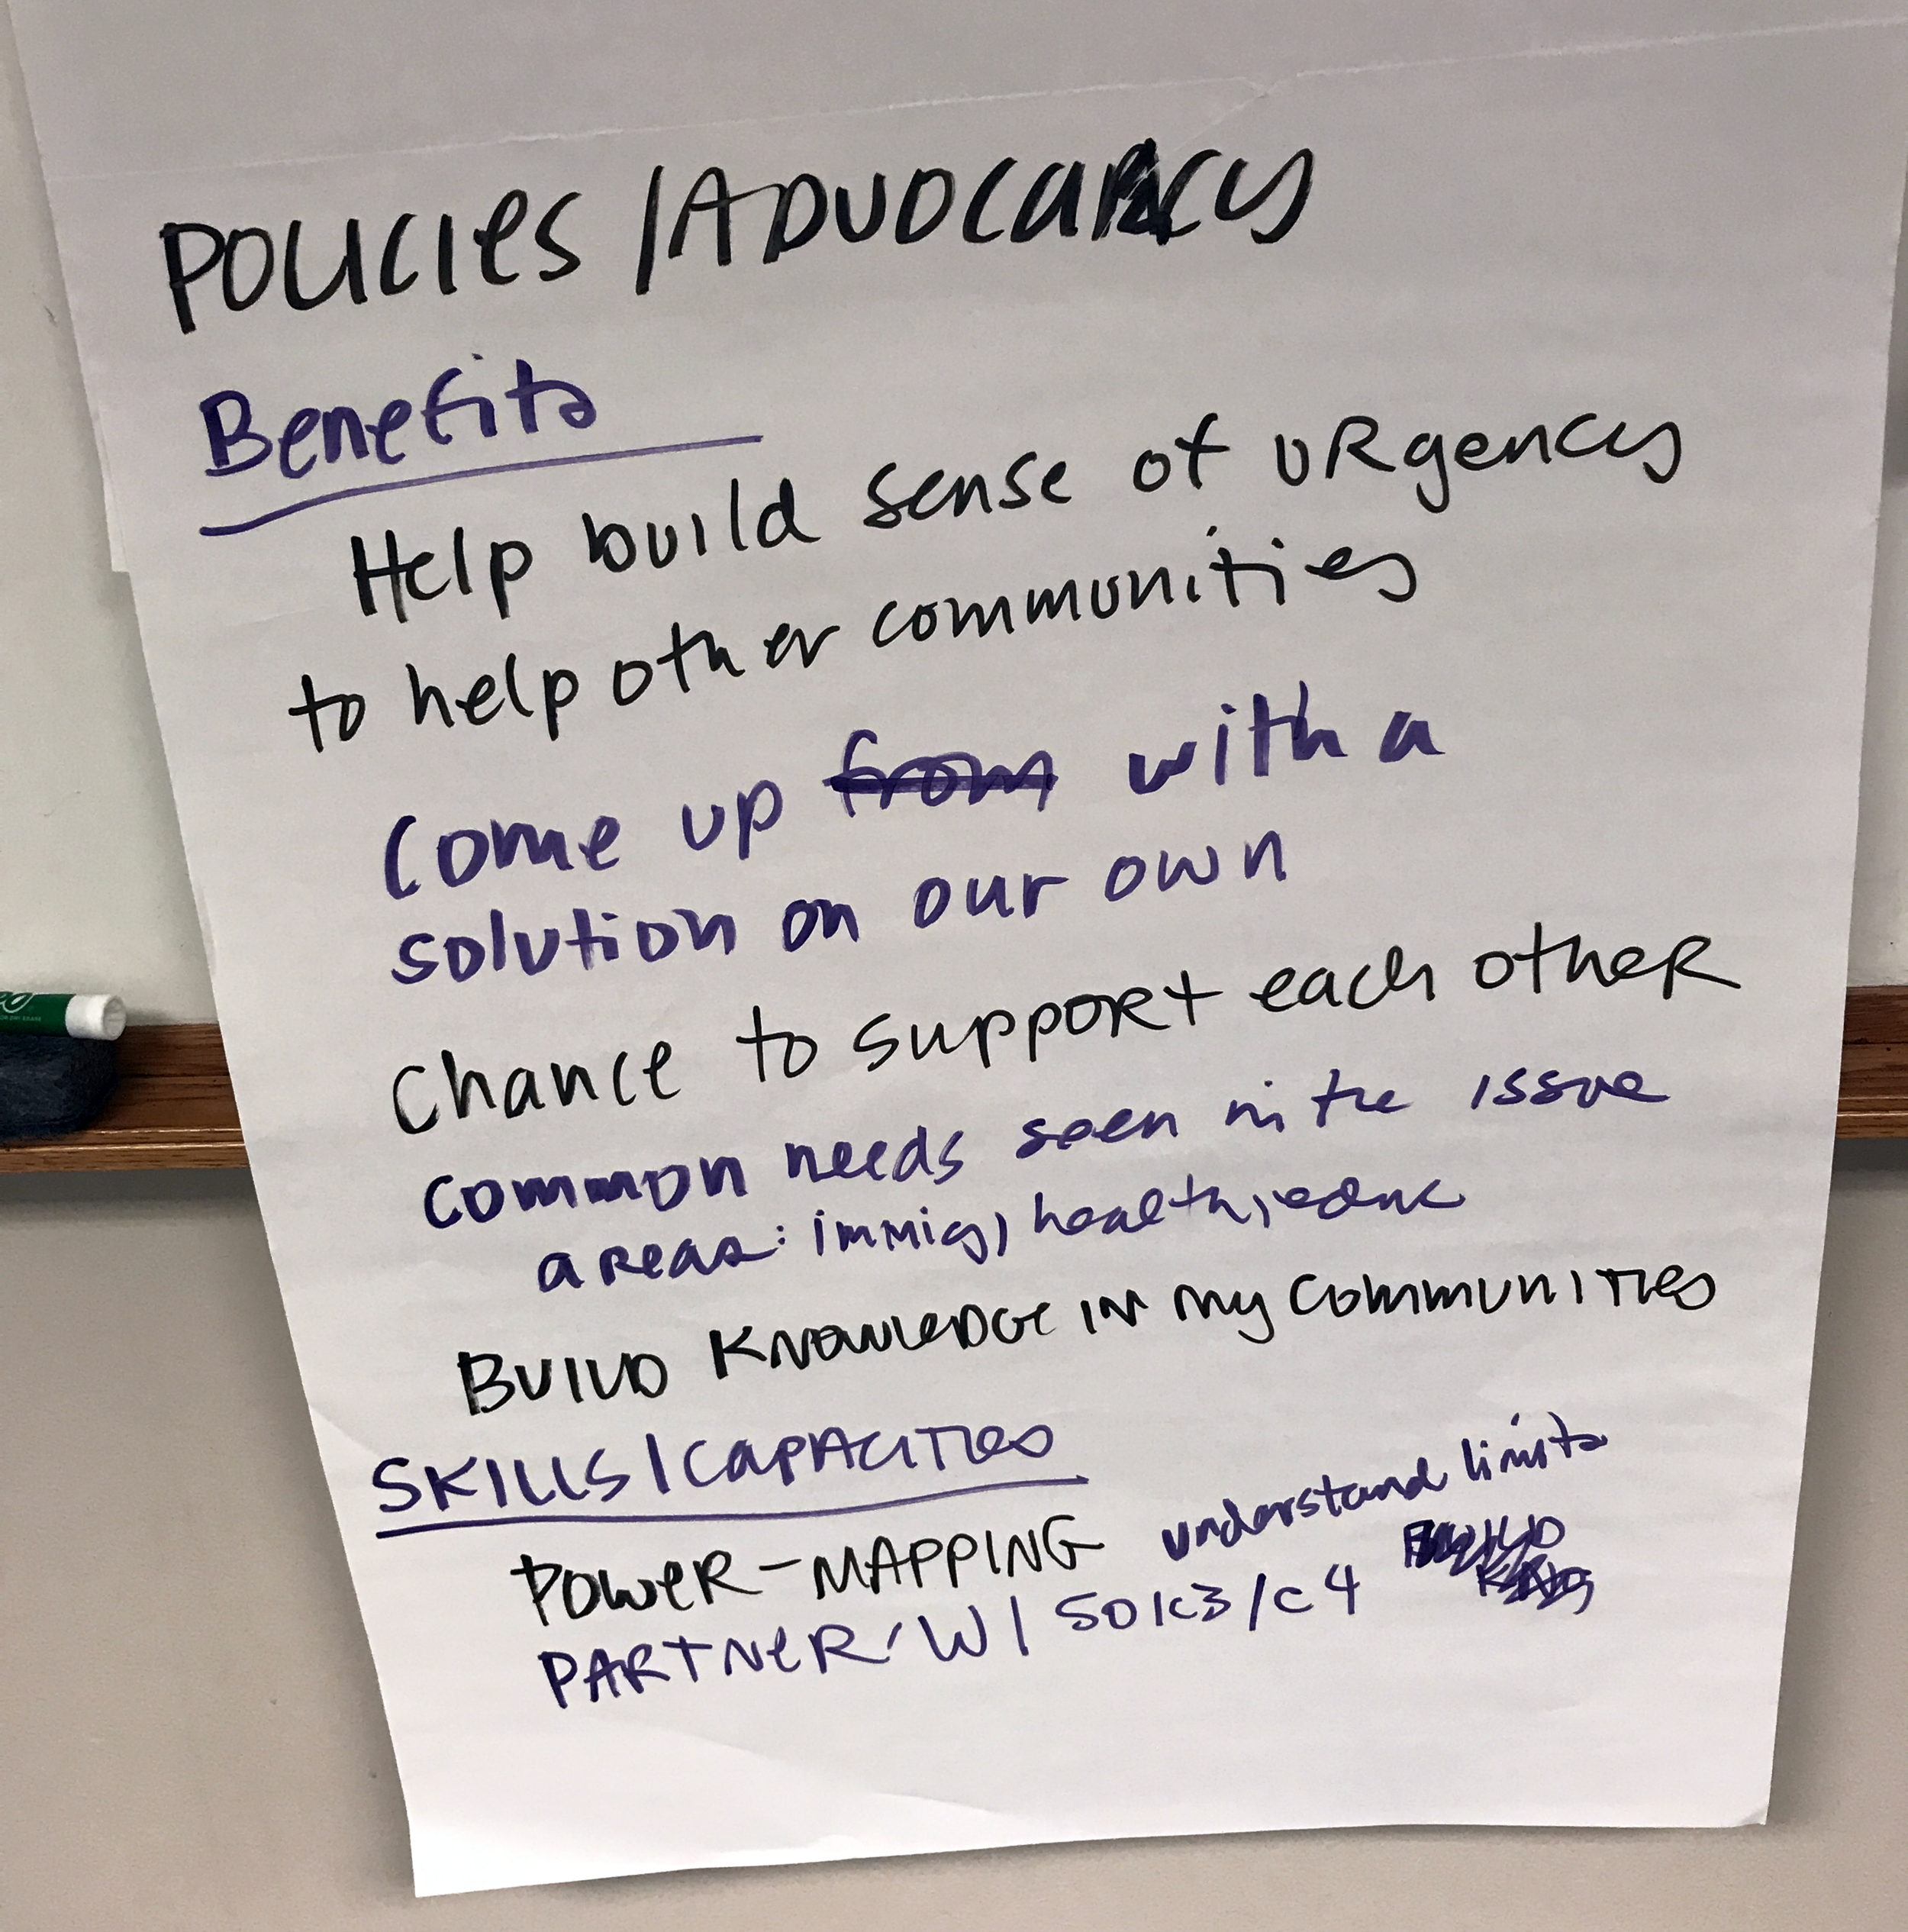 POLICIES / ADVOCACY
Benefits
Help build sense of URgency
to help other communities
Come up from with a
solution on our own
Chance to support each other
common needs seen in the issue
areas: immig, health, educ
BUILD KNOWLEDGE IN my COMMUNITIES
SKILLS / CAPACITIES
POWER-MAPPING understand limits
PARTNER W/ 501c3/c4